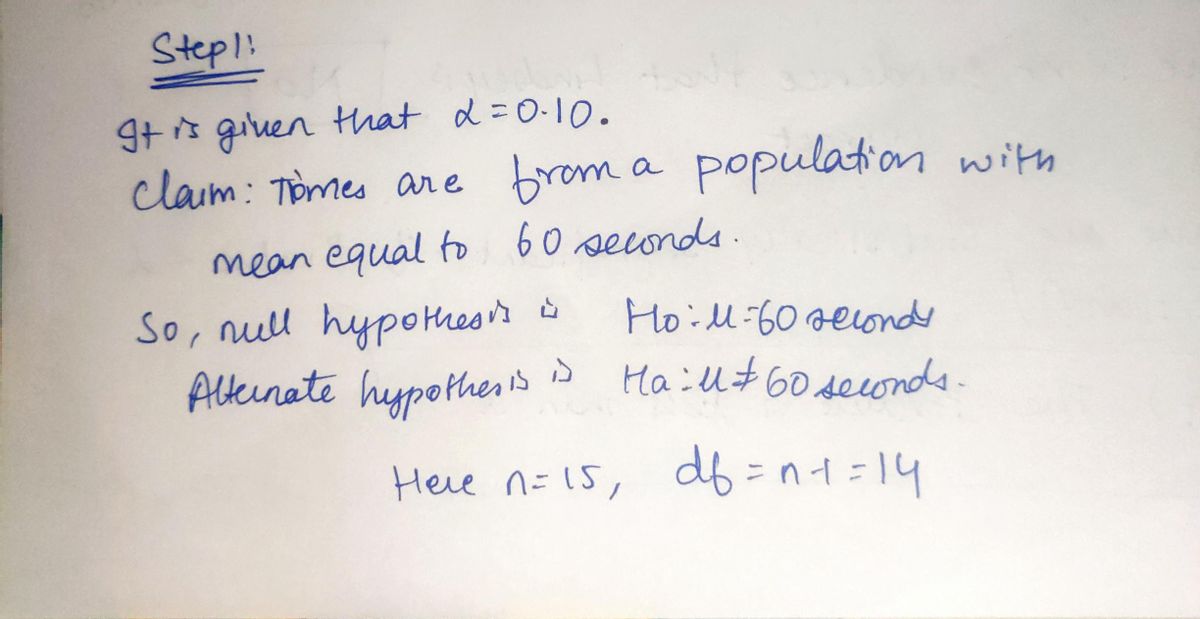 Step 1:
It is given that α = 0.10.
Claim: Times are from a population with
mean equal to 60 seconds.
So, null hypothesis is H0: μ=60 seconds
Alternate hypothesis is Ha: μ≠60 seconds.
Here n=15, df = n-1 = 14